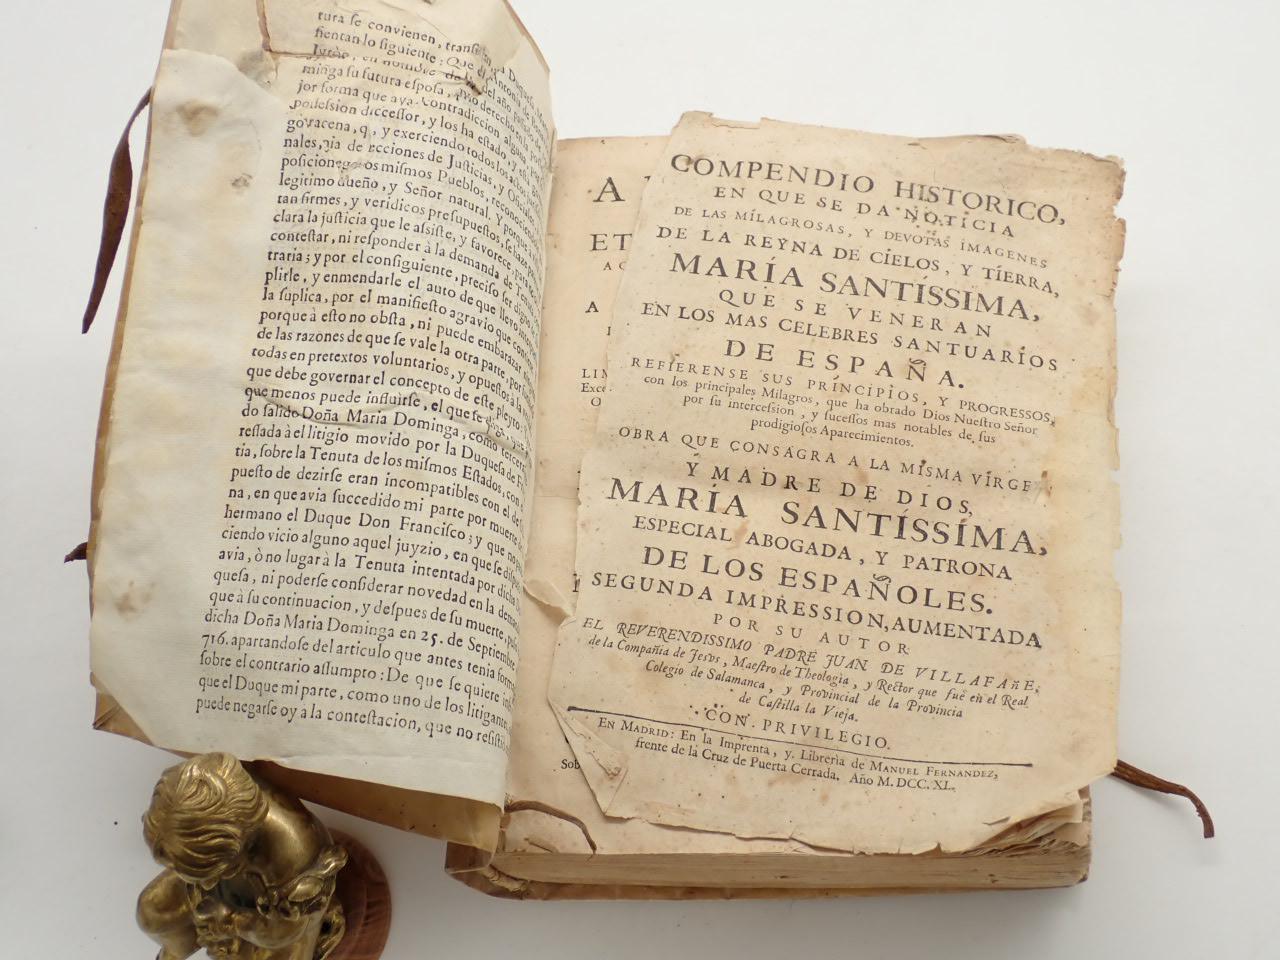 tura se convienen, trans
sientan lo siguiente: Que el
minga su futura esposa,
jor forma que aya. Contradiccion alguno
possession diccessor, y los ha estado, y
govacena, q, y exerciendo todos los actos
nales, gia de ecciones de Justicias, y Oficiales
posicione os mismos Pueblos, reconociendo
legitimo dueño, y Señor natural. Y porque
tan firmes, y veridicos presupuestos, se haze
clara la justicia que le assiste, y favorece, para
contestar, ni responder à la demanda de Tenuta
traria; y por el consiguiente, preciso ser digno
plirle, y enmendarle el auto de que llevo
la suplica, por el manifiesto agravio que
porque à esto no obsta, ni puede embarazar
de las razones de que se vale la otra parte, por
todas en pretextos voluntarios, y opuestos à la
que debe governar el concepto de este pleyto
que menos puede influirse, el que se
do salido Doña Maria Dominga, como tercera
ressada à el litigio movido por la Duquesa de
tia, sobre la Tenuta de los mismos Estados, con
puesto de dezirse eran incompatibles con el de
na, en que avia succedido mi parte por muerte
hermano el Duque Don Francisco; y que no
ciendo vicio alguno aquel juyzio, en que se
avia, ò no lugar à la Tenuta intentada por dicha
quesa, ni poderse considerar novedad en la
que à su continuacion, y despues de su muerte,
dicha Doña Maria Dominga en 25. de Septiembre
716. apartandose del articulo que antes tenia
sobre el contrario assumpto: De que se quiere
que el Duque mi parte, como uno de los litigantes
puede negarse oy à la contestacion, que no resistiò
A
ET
A
LIM
Exce
O
Sob
COMPENDIO HISTORICO,
EN QUE SE DA NOTICIA
DE LAS MILAGROSAS, Y DEVOTAS IMAGENES
DE LA REYNA DE CIELOS, Y TIERRA,
MARÍA SANTÍSSIMA,
QUE SE VENERAN
EN LOS MAS CELEBRES SANTUARÍOS
DE ESPAÑA.
REFIERENSE SUS PRÍNCIPIOS, Y PROGRESSOS,
con los principales Milagros, que ha obrado Dios Nuestro Señor
por su intercession, y sucessos mas notables de sus
prodigiosos Aparecimientos.
OBRA QUE CONSAGRA A LA MISMA VÍRGE
Y MADRE DE DIOS,
MARÍA SANTÍSSÍMA,
ESPECIAL ABOGADA, Y PATRONA
DE LOS ESPAÑOLES.
SEGUNDA IMPRESSION, AUMENTADA
POR SU AUTOR
EL REVERENDISSIMO PADRE JUAN DE VILLAFAñE,
de la Compañia de Jesvs, Maestro de Theologia, y Rector que fuè en el Real
Colegio de Salamanca, y Provincial de la Provincia
de Castilla la Vieja.
CON PRIVILEGIO.
EN MADRID: En la Imprenta, y Libreria de MANUEL FERNANDEZ,
frente de la Cruz de Puerta Cerrada. Año M.DCC.XL.